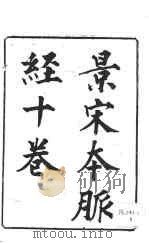 景宋本脈
経十卷
mtoou.info